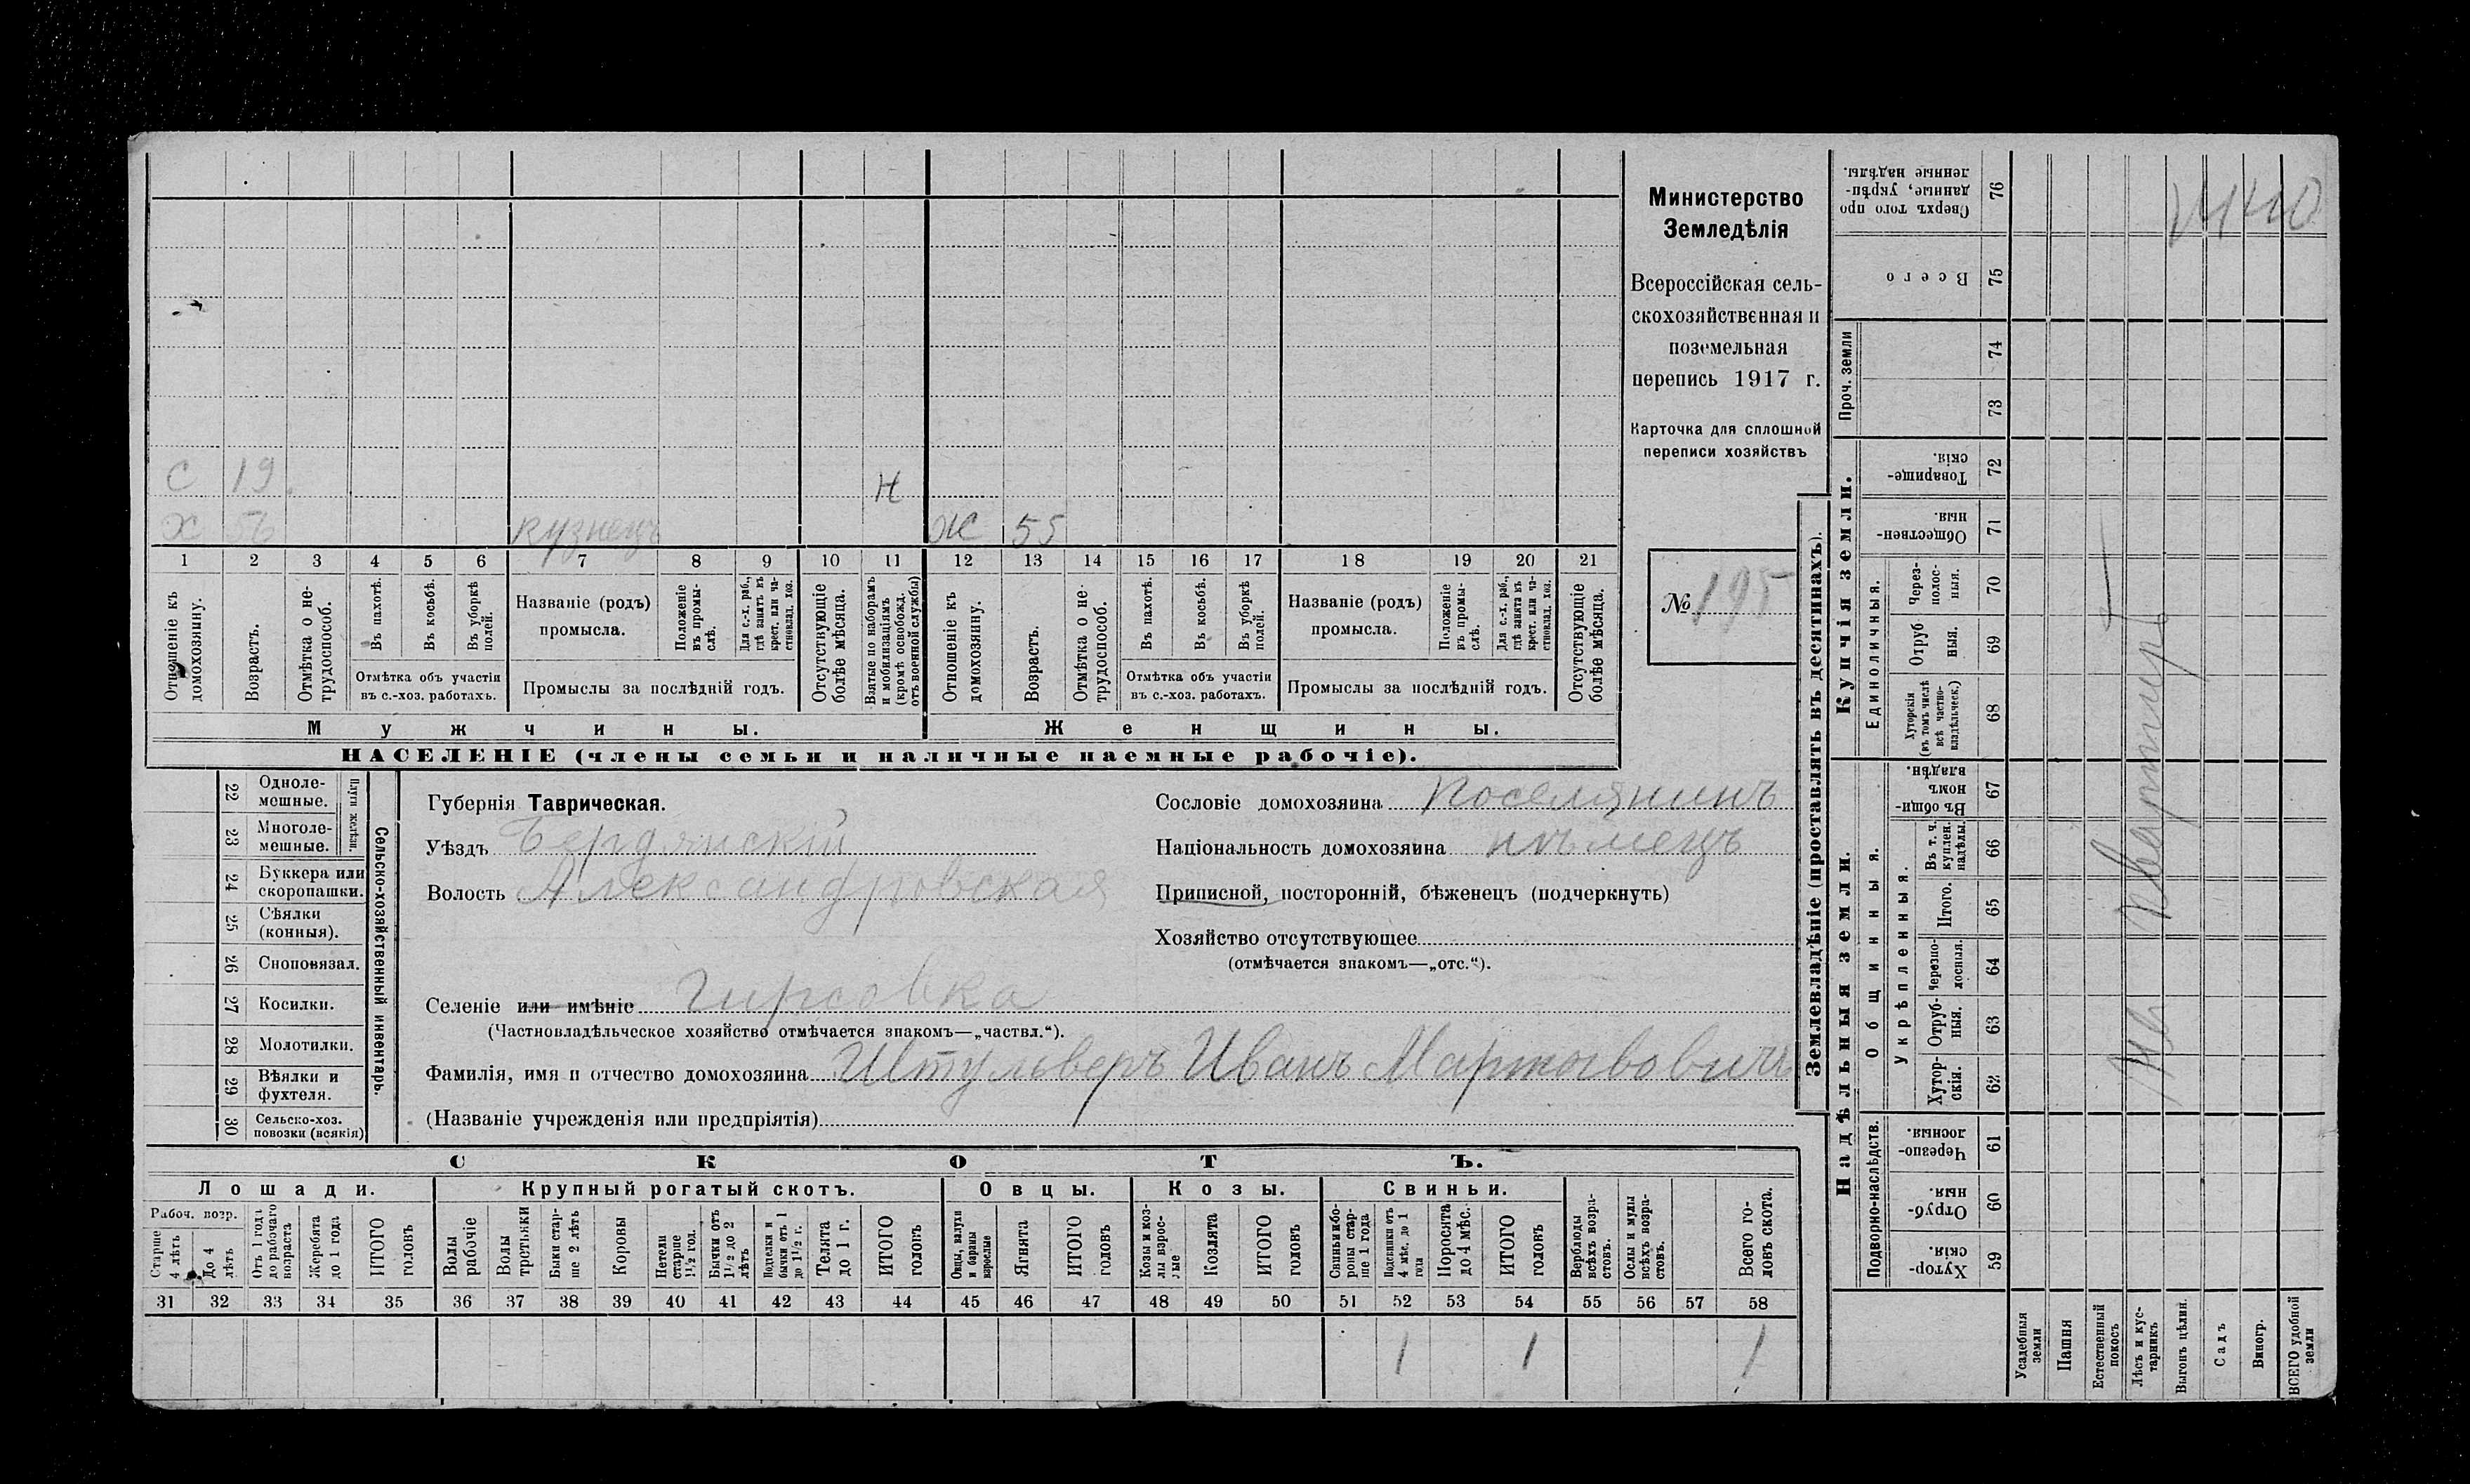 Министерство
Земледѣлія
Всероссійская сель-
скохозяйственная и
поземельная
перепись 1917 г.
Карточка для сплошной
переписи хозяйствъ
№ 195
С 19 Н
Х 56 кузнецъ Ж 55
1 2 3 4 5 6 7 8 9 10 11 12 13 14 15 16 17 18 19 20 21
Отношеніе къ домохозяину.
Возрастъ.
Отмѣтка о не-трудоспособ.
Въ пахотѣ.
Въ косьбѣ.
Въ уборкѣ полей.
Отмѣтка объ участіи
въ с.-хоз. работахъ.
Названіе (родъ)
промысла.
Положеніе въ промы-слѣ.
Для с.-х. раб., гдѣ занятъ въ крест. или ча-стновлад. хоз.
Промыслы за послѣдній годъ.
Отсутствующіе болѣе мѣсяца.
Взятые по наборамъ и мобилизаціямъ (кромѣ освобожд. отъ военной службы)
Отношеніе къ домохозяину.
Возрастъ.
Отмѣтка о не-трудоспособ.
Въ пахотѣ.
Въ косьбѣ.
Въ уборкѣ полей.
Отмѣтка объ участіи
въ с.-хоз. работахъ.
Названіе (родъ)
промысла.
Положеніе въ промы-слѣ.
Для с.-х. раб., гдѣ занята въ крест. или ча-стновлад. хоз.
Промыслы за послѣдній годъ.
Отсутствующіе болѣе мѣсяца.
Мужчины. Женщины.
НАСЕЛЕНІЕ (члены семьи и наличные наемные рабочіе).
22 Одноле-мешные.
23 Многоле-мешные.
Плуги желѣзн.
24 Буккера или скоропашки.
25 Сѣялки (конныя).
26 Сноповязал.
27 Косилки.
28 Молотилки.
29 Вѣялки и фухтеля.
30 Сельско-хоз. повозки (всякія)
Сельско-хозяйственный инвентарь.
Губернія Таврическая.
Уѣздъ Бердянскій
Волость Александровская
Селеніе или имѣніе Гирсовка
(Частновладѣльческое хозяйство отмѣчается знакомъ—„частвл.“).
Сословіе домохозяина поселянинъ
Національность домохозяина нѣмецъ
Приписной, посторонній, бѣженецъ (подчеркнуть)
Хозяйство отсутствующее
(отмѣчается знакомъ—„отс.“).
Фамилія, имя и отчество домохозяина Иванъ
(Названіе учрежденія или предпріятія)
СКОТЪ.
Лошади. Крупный рогатый скотъ. Овцы. Козы. Свиньи.
Рабоч. возр.
Старше 4 лѣтъ
До 4 лѣтъ
Отъ 1 года до рабочаго возраста
Жеребята до 1 года
ИТОГО головъ
Волы рабочіе
Волы третьяки
Быки стар-ше 2 лѣтъ
Коровы
Нетели старше 1½ год.
Бычки отъ 1½ до 2 лѣтъ
Подтелки и бычки отъ 1 до 1½ г.
Телята до 1 г.
ИТОГО головъ
Овцы, валухи и бараны взрослые
Ягнята
ИТОГО головъ
Козы и коз-лы взрос-лые
Козлята
ИТОГО головъ
Свиньи и бо-ровы стар-ше 1 года
Подсвинки отъ 4 мѣс. до 1 года
Поросята до 4 мѣс.
ИТОГО головъ
Верблюды всѣхъ возра-стовъ.
Ослы и мулы всѣхъ возра-стовъ.
Всего го-ловъ скота.
31 32 33 34 35 36 37 38 39 40 41 42 43 44 45 46 47 48 49 50 51 52 53 54 55 56 57 58
1 1 1
Землевладѣніе (проставлять въ десятинахъ).
Купчія земли.
Надѣльныя земли.
Сверхъ того про-данные, укрѣп-ленные надѣлы. 76
Всего 75
Проч. земли 74 73
Товарище-скія. 72
Обществен-ныя. 71
Единоличныя.
Через-полос-ныя. 70
Отруб-ныя. 69
Хуторскія (въ томъ числѣ всѣ частно-владѣльческ.) 68
Общинныя.
Въ общи-номъ владѣн. 67
Укрѣпленныя.
Въ т. ч. куплен. надѣлы. 66
Итого. 65
Черезпо-лосныя. 64
Отруб-ныя. 63
Хутор-скія. 62
Подворно-наслѣдств.
Черезпо-лосныя. 61
Отруб-ныя. 60
Хутор-скія. 59
Усадебныя земли
Пашня
Естественный покосъ
Лѣсъ и кус-тарникъ
Выгонъ цѣлин.
Садъ
Виногр.
ВСЕГО удобной земли